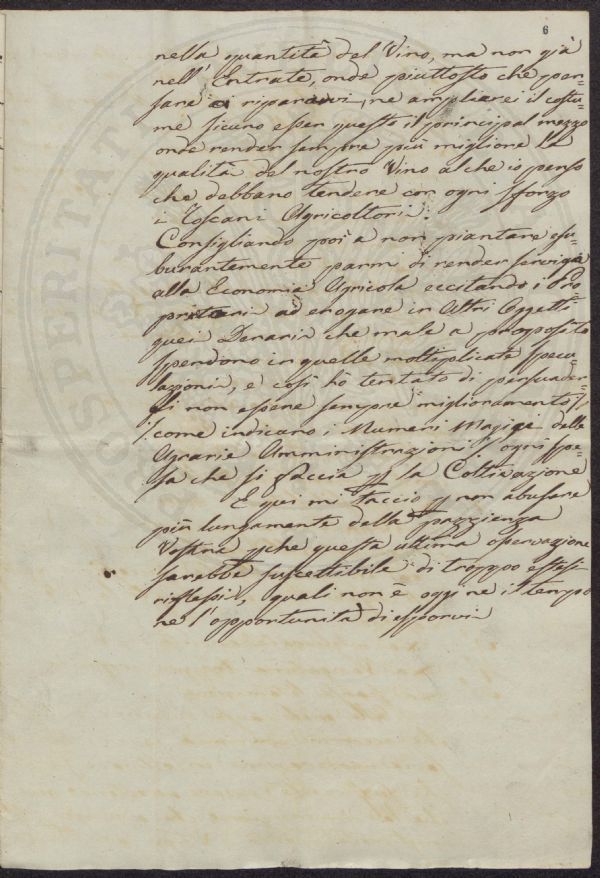 6
nella quantità del Vino, ma non già
nell'Entrate, onde piuttosto che pen=
sare a ripararvi, ne ampliarei il costu=
me sicuro esser questi il principal mezzo
onde render sempre più migliore la
qualità del nostro Vino al che io penso
che debbano tendere con ogni sforzo
i Toscani Agricoltori.
Consigliando poi a non piantare esu=
burantemente parmi di render servigio
alla Economia Agricola eccitando i Pro
prietari ad erogare in Altri Oggetti
quei Denari che male a proposito
spendono in quelle moltiplicate specu
lazioni, e così ho tentato di persuader=
vi non essere sempre miglioramento /,
/. come indicano i Numeri Magici delle
Agrarie Amministrazioni / ogni spe=
sa che si faccia p la Coltivazione
E qui mi taccio p non abusare
più lungamente della pazzienza
Vostra pche questa ultima osservazione
sarebbe suscettibile di troppo estesi
riflessi, quali non è oggi ne il tempo
ne l'opportunità di esporvi
PROSPERITATI